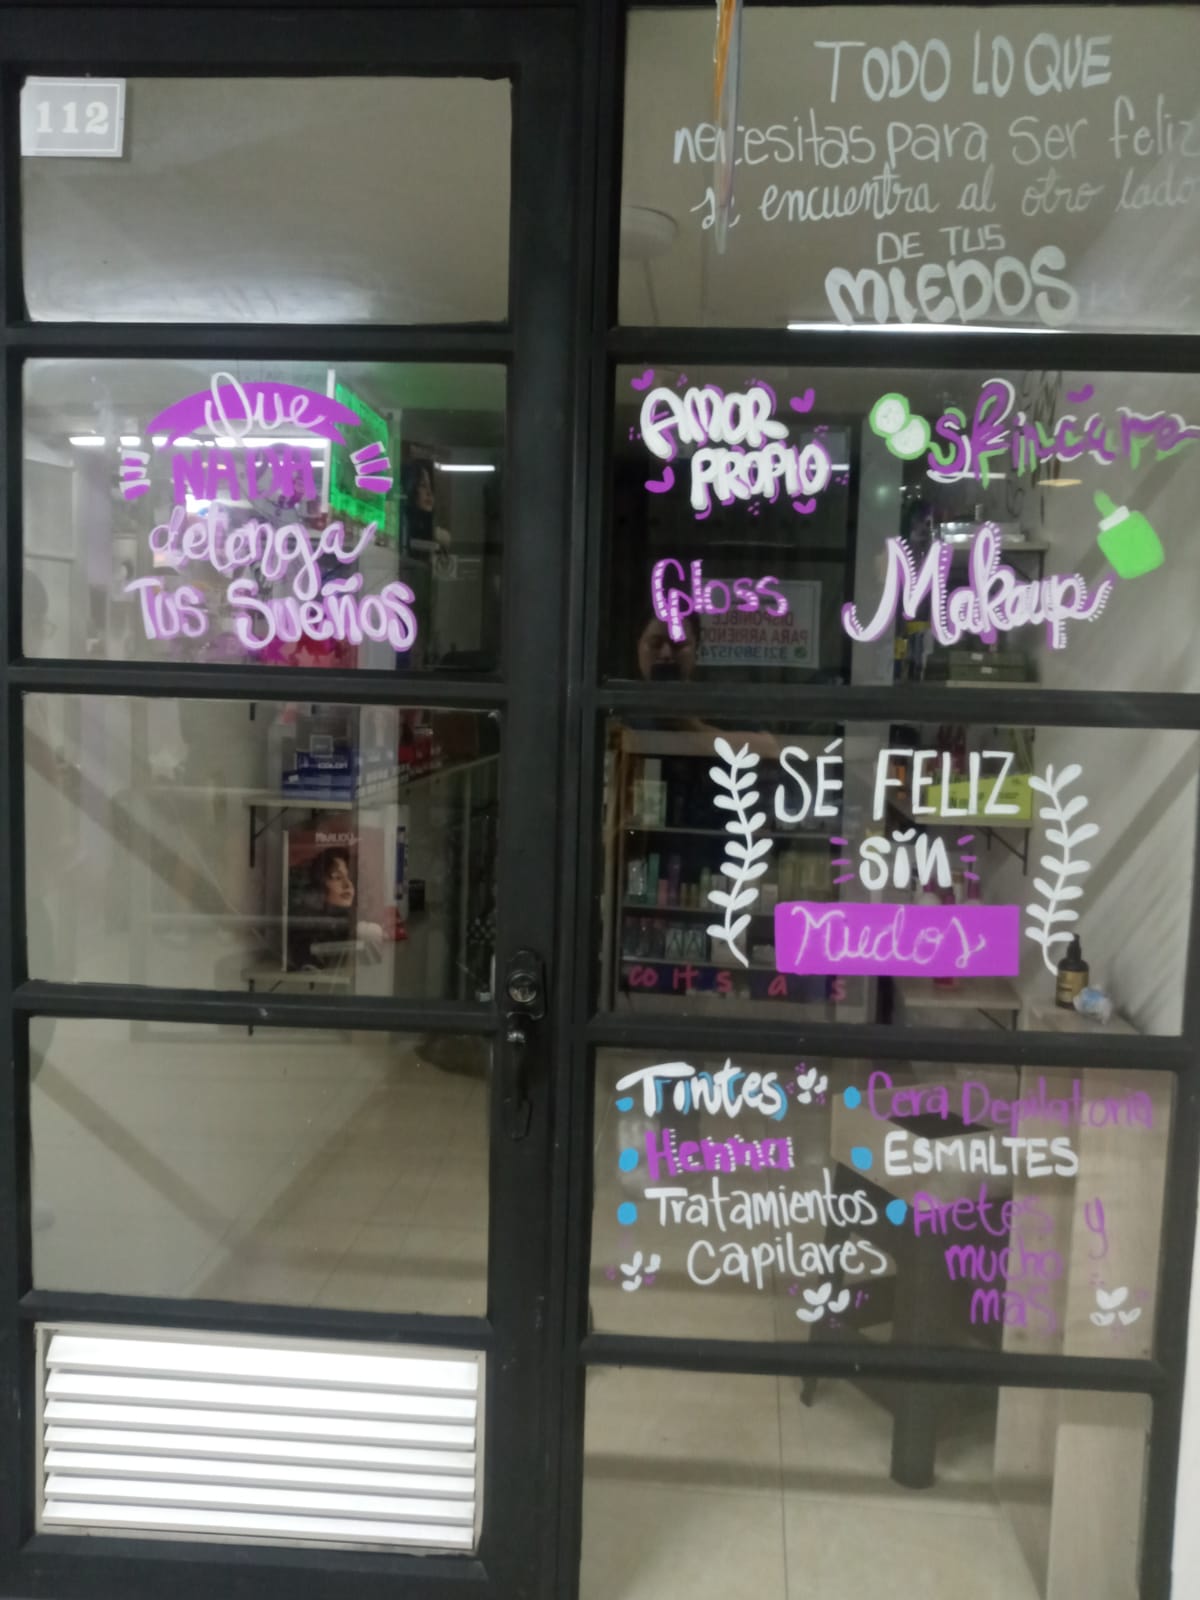 112
TODO LO QUE
necesitas para ser feliz
se encuentra al otro lado
DE TUS
MIEDOS
Que
NADA
detenga
TUS SUEÑOS
AMOR
PROPIO
skincare
Gloss
Makeup
DISPONIBLE
PARA ARRIENDO
3213891574
SÉ FELIZ
sin
Miedos
Tintes
Henna
Tratamientos
Capilares
Cera Depilatoria
ESMALTES
Aretes y
mucho
mas